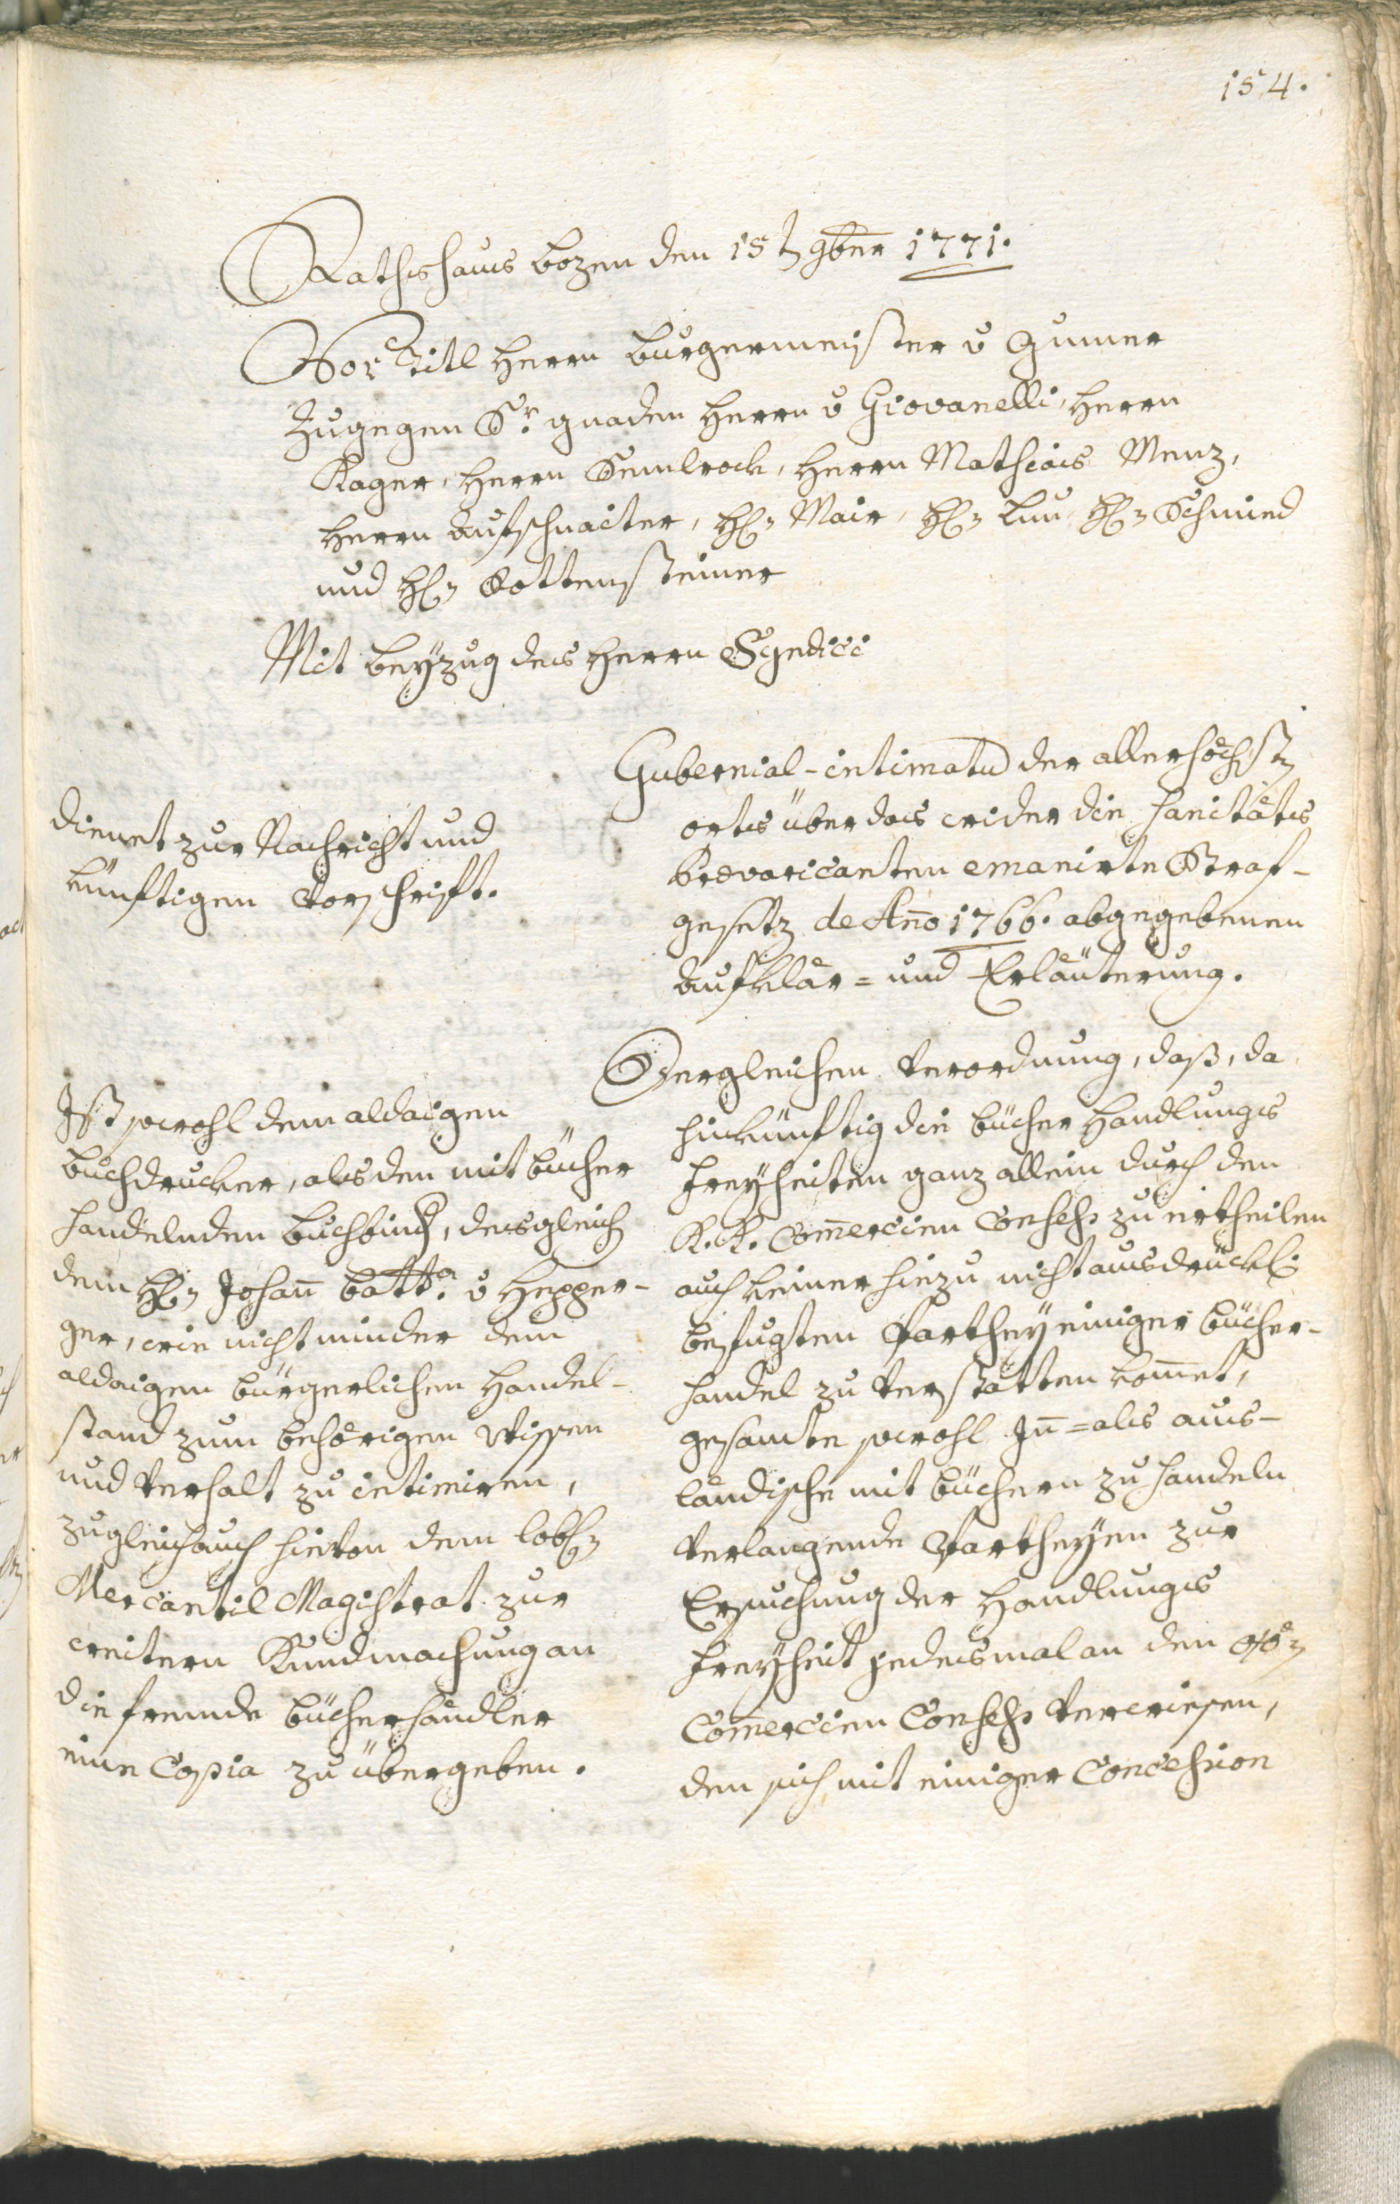 154.
Rathshaus Bozen den 15t 9ber 1771.
Vor Titl Herrn Burgermeister v Gumer
Zugegen Sr. gnaden Herrn v Giovanelli, Herrn
Kager, Herrn Semlrock, Herrn Mathias Menz,
Herrn Aufschnaiter, H: Mair, H: Lun, H: Schmied
und H: Rottensteiner
Mit Beyzug des Herrn Syndici
Gubernial-intimatum der allerhöchst
orts über das wider die sanitäts
Prævaricanten emanirte Straf-
gesetz de Año 1766. abgegebenen
Aufklär= und Erläuterung.
dienet zur Nachricht und
künftigen Vorschrift.
Dergleichen Verordnung, daß, da
hinkünftig die Bücher Handlungs
Freyheiten ganz allein durch den
K. K. Com̄ercien Consess zu ertheilen
auch keiner hiezu nicht ausdrückl:
befugten Parthey einiger Bücher-
handel zu verstatten kom̄et,
gesamte sowohl In̄= als aus-
ländische mit Büchern zu handeln
verlangende Partheyen zur
Ersuchung der Handlungs
Freyheit jedesmal an den
Com̄ercien Consess verweisen,
den sich mit einiger Concession
Ist sowohl dem aldaigen
Buchdrucker, als den mit Bücher
handelnden Buchbind, desgleich
dem H: Johan̄ Batta. v Hepper-
ger, wie nicht minder dem
aldaigen bürgerlichen Handel-
stand zum behörigen Wissen
und Verhalt zu intimiren,
zugleich auch hievon dem lobl:
Mercantil Magistrat zur
weitern Kundmachung an
die fremde Bücherhändler
eine Copia zu übergeben.